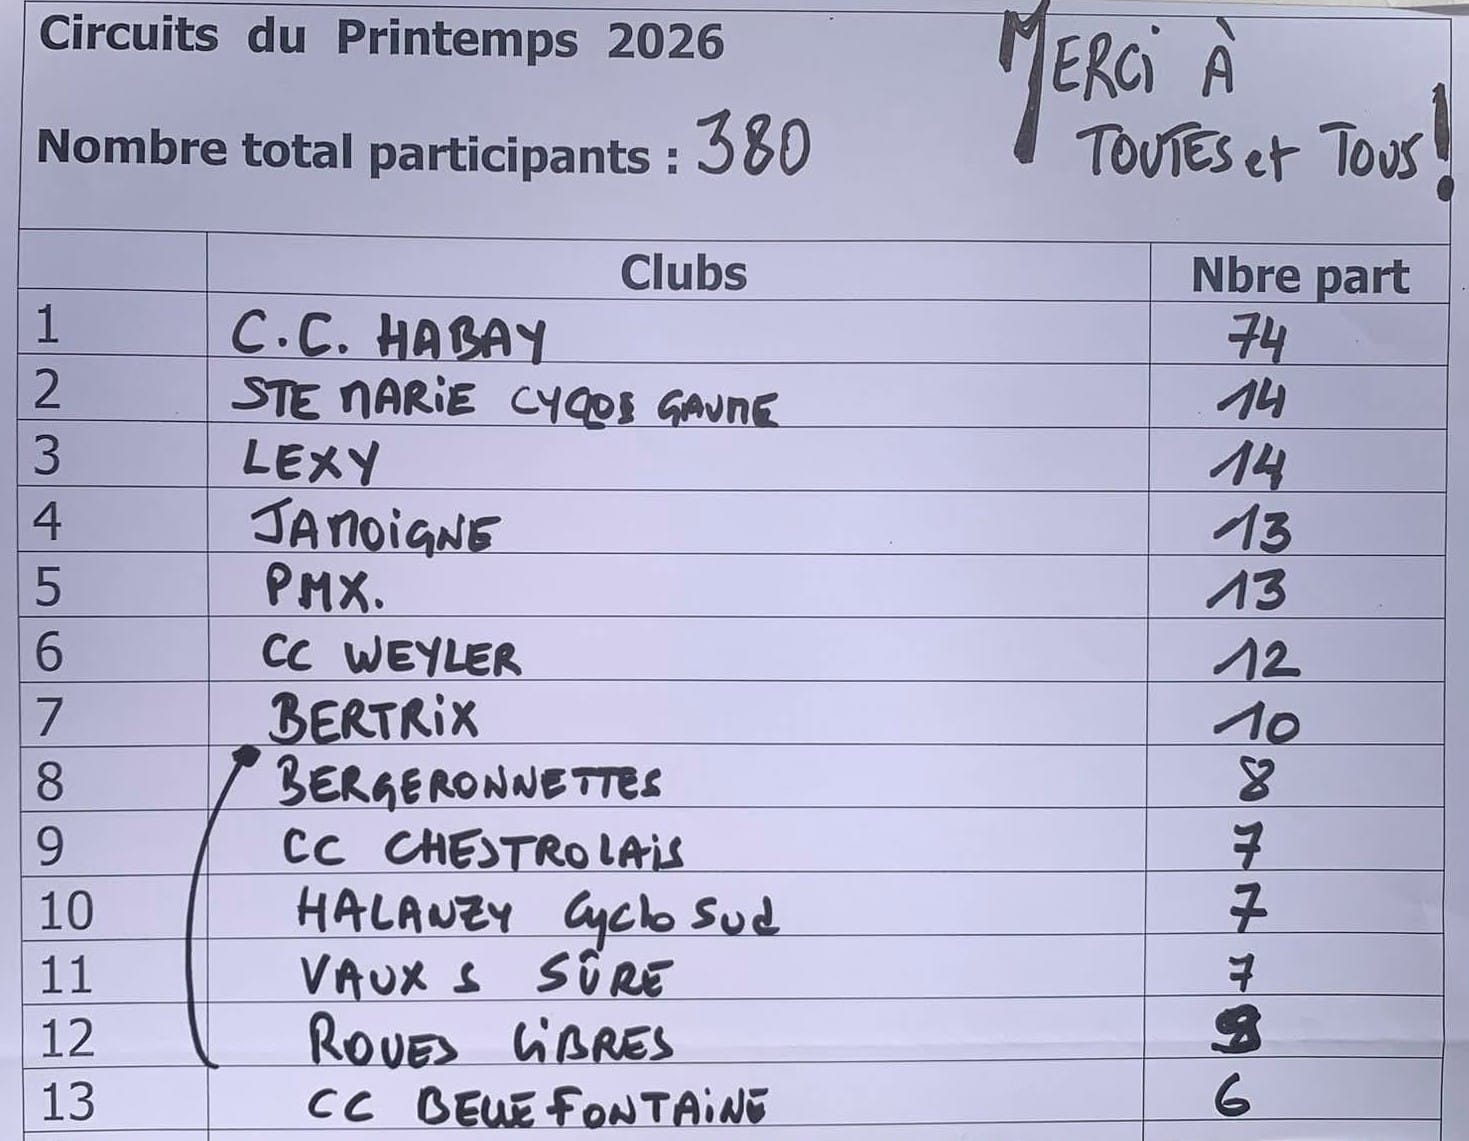 Circuits du Printemps 2026
MERCi À
TOUTES et TOUS !
Nombre total participants : 380
Clubs Nbre part
1 C.C. HABAY 74
2 STE MARiE CYCLOS GAUME 14
3 LEXY 14
4 JAMOiGNE 13
5 PMX. 13
6 CC WEYLER 12
7 BERTRiX 10
8 BERGERONNETTES 8
9 CC CHESTROLAiS 7
10 HALANZY Cyclo Sud 7
11 VAUX S SÛRE 7
12 ROUES LiBRES
13 CC BELLEFONTAiNE 6